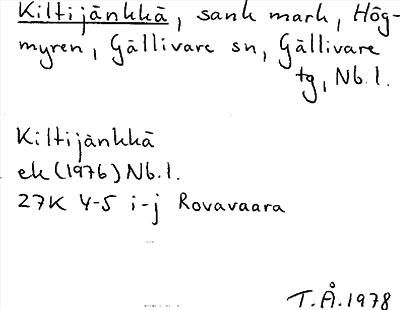 Kiltijänkkä, sank mark, Hög-
myren, Gällivare sn, Gällivare
tg, Nb.l.
Kiltijänkkä
ek (1976) Nb.l.
27K 4-5 i-j Rovavaara
T.Å. 1978